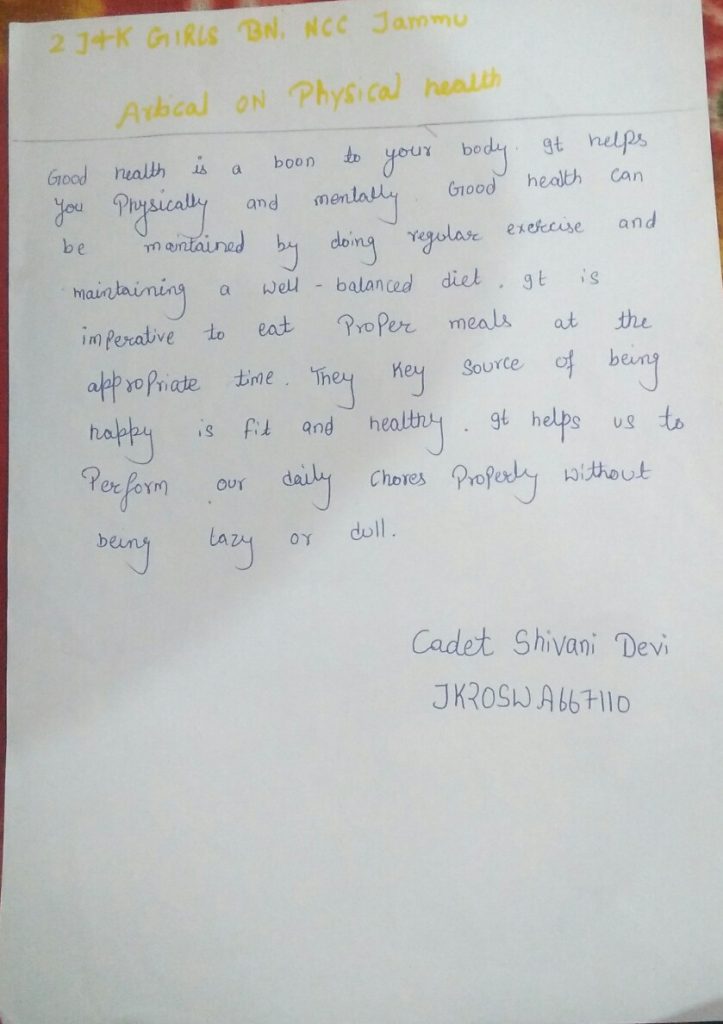 2 J+K GIRLS BN. NCC Jammu
Artical ON Physical health
Good health is a boon to your body. It helps
you Physically and mentally. Good health can
be maintained by doing regular exercise and
maintaining a well-balanced diet. It is
imperative to eat Proper meals at the
appropriate time. They key source of being
happy is fit and healthy. It helps us to
Perform our daily chores Properly without
being lazy or dull.
Cadet Shivani Devi
JK20SWA667110